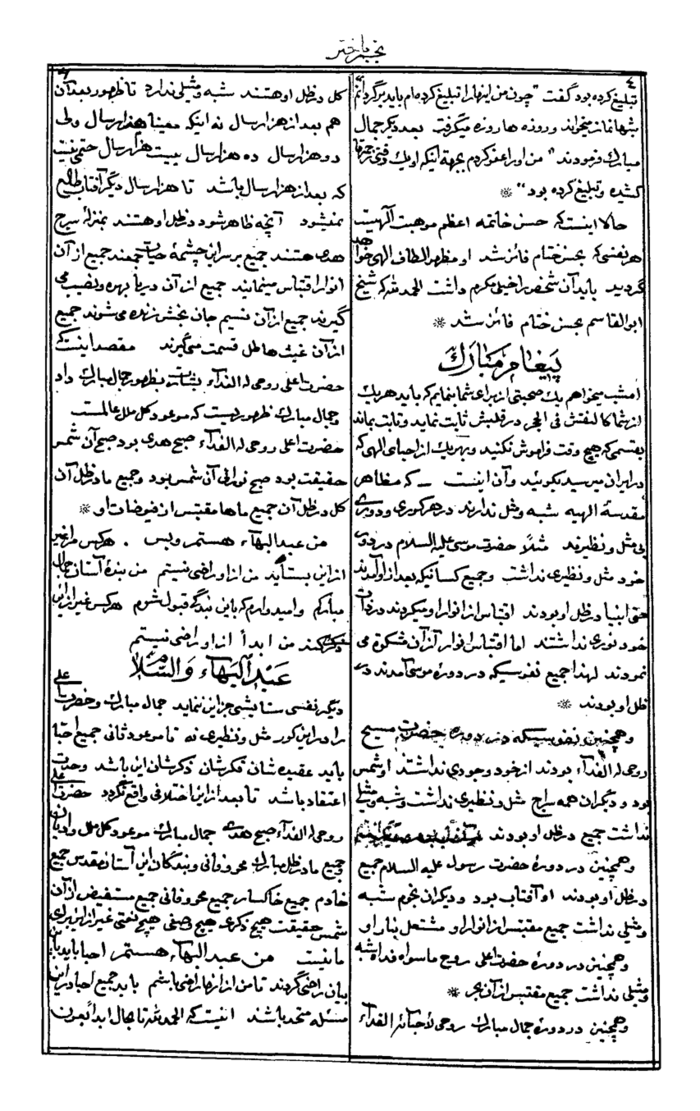 نجم باختر
۴
تبلیغ کرده بود گفت "چون من اینها را تبلیغ کرده‌ام باید برگردانم
شبها نماز میخواند و روزه ها روزه میگرفت بعد دیگر جمال
مبارک فرمودند" من او را عفو کردم بجهة اینکه او یک وقتی زحمتها
کشیده و تبلیغ کرده بود" *
حالا اینست که حسن خاتمه اعظم موهبت الهیست
هر نفسی که بحسن ختام فائز شد او مظهر الطاف الهی خواهد
گردید باید آن شخص را خیلی مکرم داشت الحمد لله که شیخ
ابو القاسم بحسن ختام فائز شد *
پیغام مبارک
امشب میخواهم یک صحبتی از برای شما نمایم که باید هر یک
از شما کالنقش فی الحجر در قلبش ثابت نماید و ثابت بماند
بقسمی که هیچ وقت فراموش نکنید و بهر یک از احبای الهی که
در ایران میرسید بگوئید و آن اینست که مظاهر
مقدسهٔ الهیه شبه و مثل ندارند در هر کوری و دوری
بی مثل و نظیرند مثلا حضرت موسی علیه السلام در دورهٔ
خود مثل و نظیری نداشت و جمیع کسانیکه بعد از او آمدند
حتی انبیا در ظل او بودند اقتباس از انوار او میکردند در ذات
خود نوری نداشتند اما اقتباس انوار از آن مشکوة می
نمودند لهذا جمیع نفوسیکه در دورهٔ موسی آمدند در
ظل او بودند *
و همچنین نفوسیکه در دوره حضرت مسیح
روحی له الفداء بودند از خود وجودی نداشتند او شمس
بود و دیگران همه سراج مثل و نظیری نداشت و شبه و مثلی
نداشت جمیع در ظل او بودند
و همچنین در دورهٔ حضرت رسول علیه السلام جمیع
در ظل او بودند او آفتاب بود و دیگران نجوم شبه
و مثلی نداشت جمیع مقتبس از انوار او و مشتعل بنار او
و همچنین در دورهٔ حضرت اعلی روح ما سواه فداه شبه
و مثلی نداشت جمیع مقتبس از آن بحر *
و همچنین در دورهٔ جمال مبارک روحی لاحبائه الفداء
کل در ظل او هستند شبه و مثیلی ندارد تا ظهور بعد آن
هم بعد از هزار سال نه اینکه معینا هزار سال ولی
دو هزار سال ده هزار سال بیست هزار سال حتمی نیست
که بعد از هزار سال باشد تا هزار سال دیگر آفتاب طالع
نمیشود آنچه ظاهر شود در ظل او هستند بمنزلهٔ سرج
هدی هستند جمیع بر سر این چشمهٔ حیات جمعند جمیع از آن
انوار اقتباس مینمایند جمیع از آن دریا بهره و نصیب می
گیرند جمیع از آن نسیم جان بخش زنده می شوند جمیع
از آن غیث هاطل قسمت میگیرند مقصد اینست که
حضرت اعلی روحی له الفداء بشارت بظهور جمال مبارک داد
و جمال مبارک ظهوریست که موعود کل ملل عالمست
حضرت اعلی روحی له الفداء صبح هدی بود صبح آن شمس
حقیقت بود صبح نورانی آن شمس بود و جمیع ما در ظل آن
کل در ظل آن جمیع ماها مقتبس از فیوضات او *
من عبد البهاء هستم و بس . هر کس مرا غیر
از این بستاید من از او راضی نیستم من بندهٔ آستان جمال
مبارکم و امیدوارم که باین بندگی قبول شوم هر کس غیر از این
ذکری کند من ابدأ از او راضی نیستم
عبد البهاء والسلام
دیگر نفسی ستایشی جز این ننماید جمال مبارک و حضرت اعلی
را در این کور مثل و نظیری نه تا موعود ثانی جمیع احبا
باید عقیده شان فکرشان ذکرشان این باشد وحدت
اعتقاد باشد تا بعد از این اختلافی واقع نگردد حضرت اعلی
روحی له الفداء صبح هدی جمال مبارک موعود کل ملل و ادیان
و جمیع ما در ظل مبارک محو و فانی و بندگان این آستان مقدس جمیع
خادم جمیع خاکسار جمیع محو و فانی جمیع مستفیض از آن
شمس حقیقت هیچ ذکری هیچ وصفی هیچ نعتی غیر از این از برای
ما نیست من عبد البهاء هستم احبا باید باین
بیان راضی گردند تا من از آنها راضی باشم باید جمیع احبا در این
مسئله متحد باشند اینست که الحمد لله تا بحال ابدأ بعون